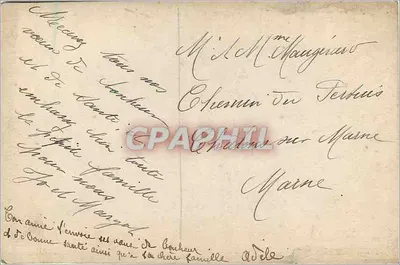 Recevez tous nos
vœux de bonheur
et de santé
toute
la petite famille
pour nous
Jo et Margot
Ton amie t'envoie ses vœux de bonheur
et de bonne santé ainsi qu'à ta chère famille Adèle
Mr & Mme Maugérard
Chemin du Pertuis
sur Marne
Marne
CPARAMA